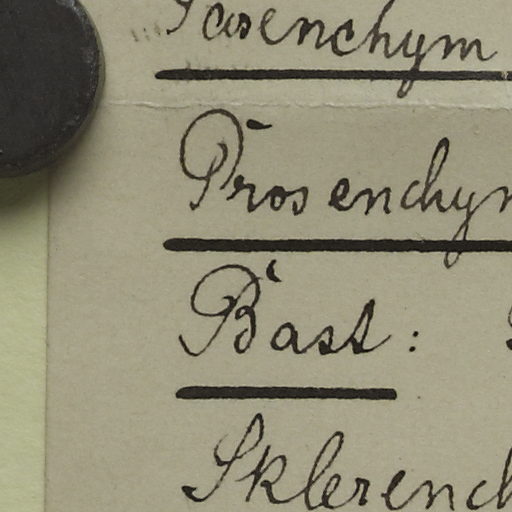 Parenchym
Prosenchym
Bast:
Sklerench